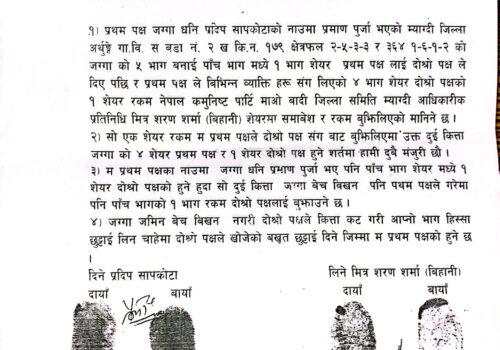 १) प्रथम पक्ष जग्गा धनि प्रदिप सापकोटाको नाउमा प्रमाण पुर्जा भएको म्याग्दी जिल्ला
अर्थुङ्गे गा.वि. स बडा नं. २ ख कि.न. १७९ क्षेत्रफल २-५-३-३ र ३६४ १-६-१-२ को
जग्गा को ५ भाग बनाई पाँच भाग मध्ये १ भाग शेयर प्रथम पक्ष लाई दोश्रो पक्ष ले
दिए पछि र प्रथम पक्ष ले बिभिन्न व्याक्ति हरू संग लिएको ४ भाग शेयर दोश्रो पक्षको
१ शेयर रकम नेपाल कमुनिष्ट पार्टि माओ बादी जिल्ला समिति म्याग्दी आधिकारीक
प्रतिनिधि मित्र शरण शर्मा (बिहानी) शेयरमा समाबेश र रकम बुझिलिएको मानिने छ ।
२) सो एक शेयर रकम म प्रथम पक्षले दोश्रो पक्ष संग बाट बुझिलिएमा उक्त दुई कित्ता
जग्गा को ४ शेयर प्रथम पक्ष र १ शेयर दोश्रो पक्ष हुने शर्तमा हामी दुबै मंजुरी छौ ।
३) म प्रथम पक्षका नाउमा जग्गा धनि प्रमाण पुर्जा भए पनि पाँच भाग शेयर मध्ये १
शेयर दोश्रो पक्षको हुने हुदा सो दुई कित्ता जग्गा बेच बिखन पनि पथम पक्षले गरेमा
पनि पाँच भागको १ भाग रकम दोश्रो पक्षलाई बुझाउने छ ।
४) जग्गा जमिन बेच बिखन नगरी दोश्रो पक्षले कित्ता कट गरी आप्नो भाग हिस्सा
छुट्टाई लिन चाहेमा दोश्रो पक्षले खोजेको बखत छुट्टाई दिने जिम्मा म प्रथम पक्षको हुने छ
।
दिने प्रदिप सापकोटा लिने मित्र शरण शर्मा (बिहानी)
दायाँ बायाँ दायाँ बायाँ